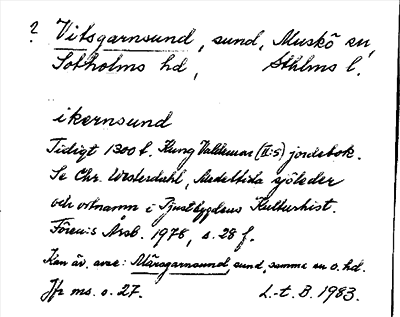 ? Vitsgarnsund, sund, Muskö sn,
Sotholms hd, Sthlms l.
ikernsund
Tidigt 1300 t. Kung Valdemars (II:s) jordebok.
Se Chr. Westerdahl, Medeltida sjöleder
och ortnamn i Tjustbygdens Kulturhist.
Fören:s Årsb. 1978, s. 28 f.
Kan äv. avse: Märsgarnsund, sund, samma sn o. hd.
Jfr ms. o. 27. L-t. B. 1983.